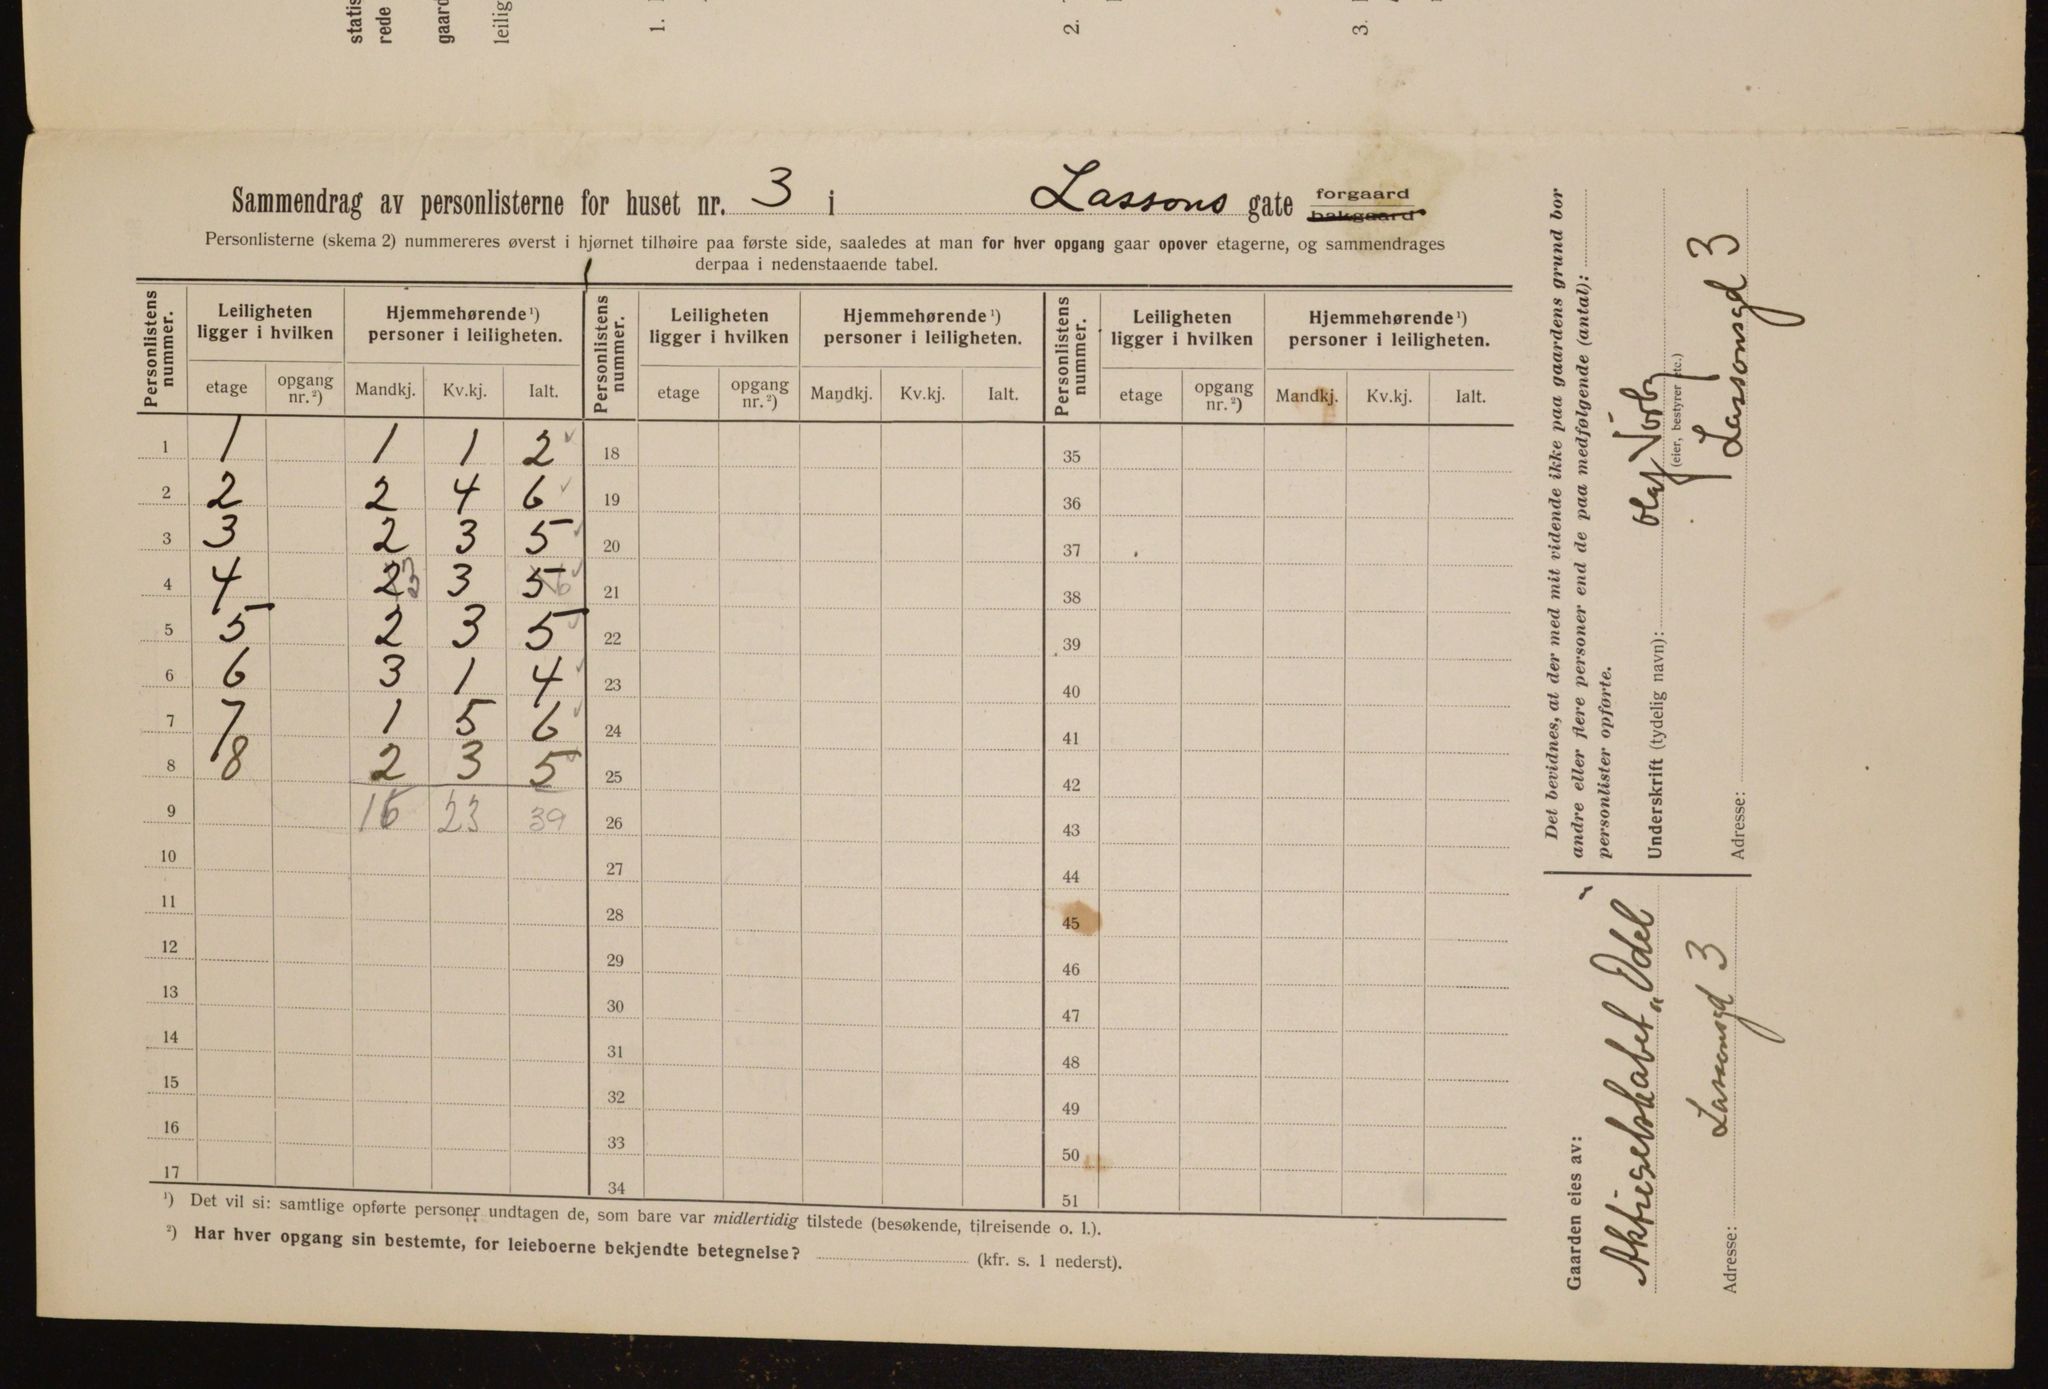 statis
rede
gaard
leilig
1.
2.
3.
Sammendrag av personlisterne for huset nr. 3 i Lassons gate forgaard bakgaard
Personlisterne (skema 2) nummereres øverst i hjørnet tilhøire paa første side, saaledes at man for hver opgang gaar opover etagerne, og sammendrages
derpaa i nedenstaaende tabel.
Personlistens nummer. Leiligheten ligger i hvilken Hjemmehørende ¹) personer i leiligheten. Personlistens nummer. Leiligheten ligger i hvilken Hjemmehørende ¹) personer i leiligheten. Personlistens nummer. Leiligheten ligger i hvilken Hjemmehørende ¹) personer i leiligheten.
etage opgang nr. ²) Mandkj. Kv.kj. Ialt. etage opgang nr. ²) Mandkj. Kv.kj. Ialt. etage opgang nr. ²) Mandkj. Kv.kj. Ialt.
1 1 1 1 2 18 35
2 2 2 4 6 19 36
3 3 2 3 5 20 37
4 4 2 3 3 5 6 21 38
5 5 2 3 5 22 39
6 6 3 1 4 23 40
7 7 1 5 6 24 41
8 8 2 3 5 25 42
9 16 23 39 26 43
10 27 44
11 28 45
12 29 46
13 30 47
14 31 48
15 32 49
16 33 50
17 34 51
¹) Det vil si: samtlige opførte personer undtagen de, som bare var midlertidig tilstede (besøkende, tilreisende o. l.).
²) Har hver opgang sin bestemte, for leieboerne bekjendte betegnelse? (kfr. s. 1 nederst).
Det bevidnes, at der med mit vidende ikke paa gaardens grund bor
andre eller flere personer end de paa medfølgende (antal):
personlister opførte.
Underskrift (tydelig navn): Olaf
(eier, bestyrer etc.)
Adresse: Lassonsgd 3
Gaarden eies av:
Aktieselskabet „Odel"
Adresse: Lassonsgd 3